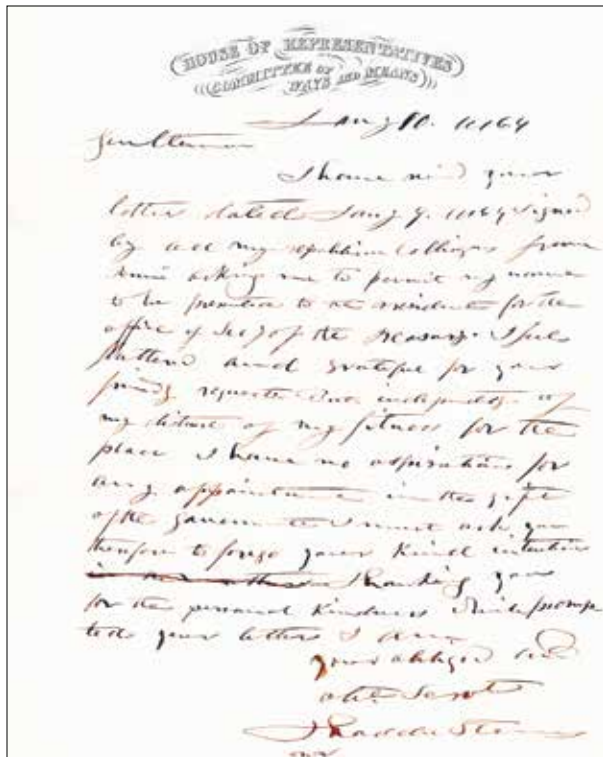 HOUSE OF REPRESENTATIVES
COMMITTEE OF
WAYS AND MEANS
Jany 10. 1864
Gentlemen
I have recd your
letter dated Jany 9. 1864 signed
by all my republican colleagues from
asking me to permit my name
to be to the President for the
office of Secy of the Treasury. I feel
and grateful for your
request But independt of
my distrust of my fitness for the
place I have no aspirations for
any appointment in the gift
of the government I must ask you
therefore to forego your kind intentions
Thanking you
for the personal kindness which promp
ted your letters I am
your obliged and
obt Servt
Thaddeus Stevens